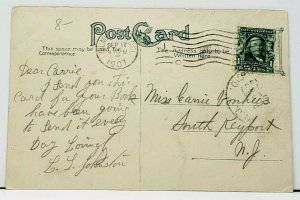 8-
Post Card
This space may be used for
Correspondence
The Address only to be
Written here
SEP 17
1907
Dear Carrie
I send you this
Card for your Book
have been going
to send it ever
Day Loving
L. L. Johnston
Miss Carrie Vonhees
South Keyport
N. J.